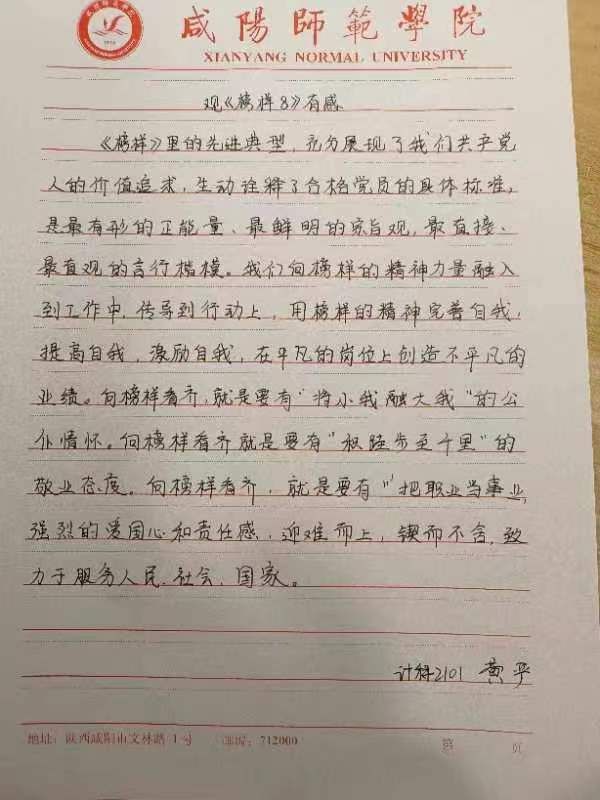 咸陽師範學院
XIANYANG NORMAL UNIVERSITY
观《榜样8》有感
《榜样》里的先进典型，充分展现了我们共产党
人的价值追求，生动诠释了合格党员的具体标准，
是最有形的正能量、最鲜明的宗旨观，最直接、
最直观的言行楷模。我们向榜样的精神力量融入
到工作中，传导到行动上，用榜样的精神完善自我，
提高自我，激励自我，在平凡的岗位上创造不平凡的
业绩。向榜样看齐，就是要有“将小我融大我”的公
仆情怀。向榜样看齐就是要有“积跬步至千里”的
敬业态度。向榜样看齐，就是要有“把职业当事业，
强烈的爱国心和责任感，迎难而上，锲而不舍，致
力于服务人民、社会、国家。
计科2101 黄平
地址：陕西咸阳市文林路1号 邮编：712000 第 页